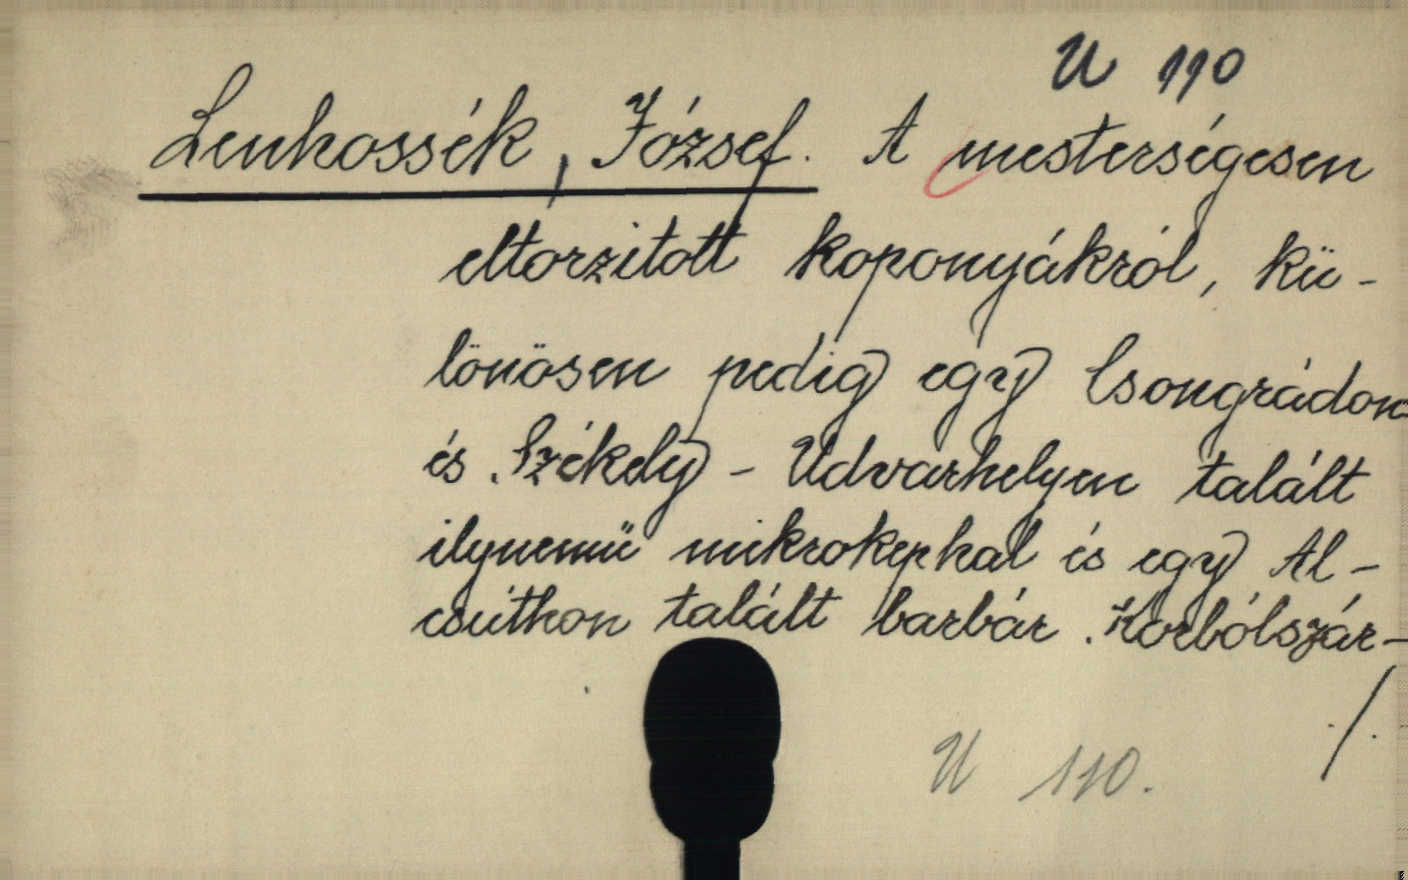 U 110
Lenhossék, József. A mesterségesen
eltorzitott koponyákról, kü-
lönösen pedig egy Csongrádon
és Székely - Udvarhelyen talált
ilynemü mikrokephal és egy Al-
csúthon talált barbár. Korbólszár-
./.
U 110.